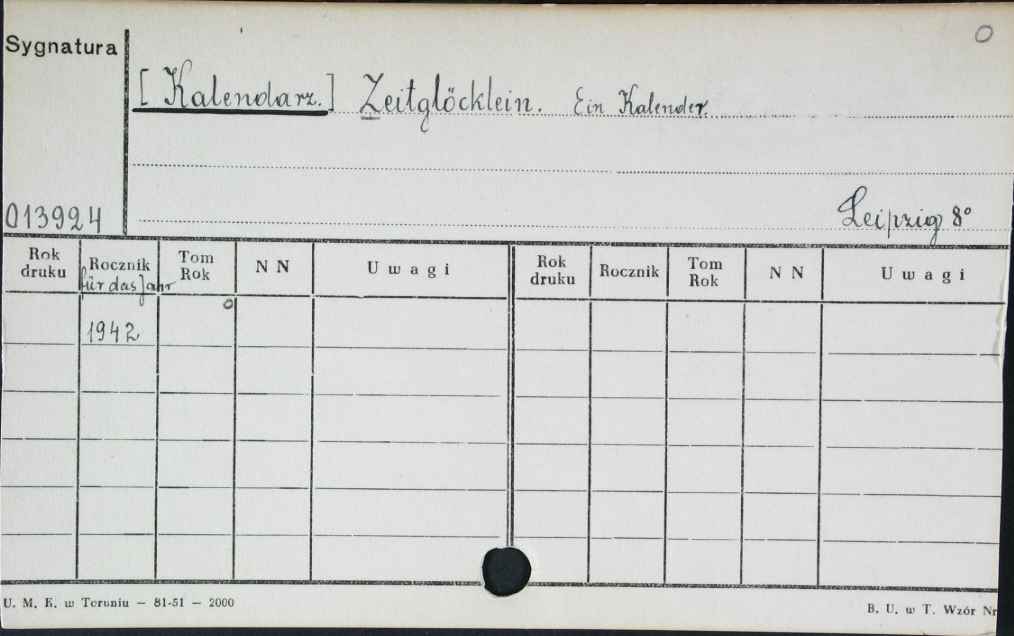 O
Sygnatura
[Kalendarz.] Zeitglöcklein. Ein Kalender.
013924
Leipzig 8°
Rok druku Rocznik für das Jahr Tom Rok N N Uwagi Rok druku Rocznik Tom Rok N N Uwagi
1942 o
U. M. K. w Toruniu — 81-51 — 2000
B. U. w T. Wzór Nr